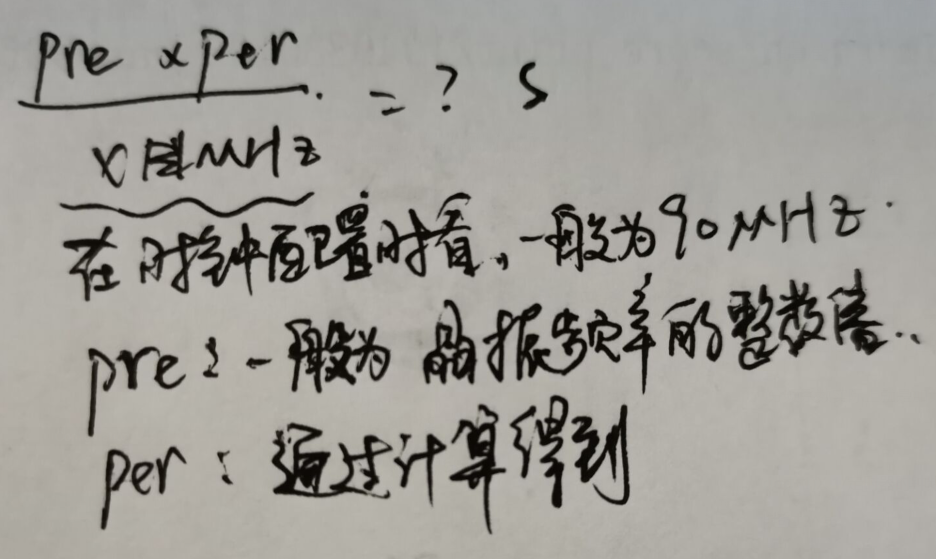 pre x per
= ? s
x MHz
在时钟配置时看,一般为90MHz.
pre:一般为 晶振频率的整数倍..
per:通过计算得到